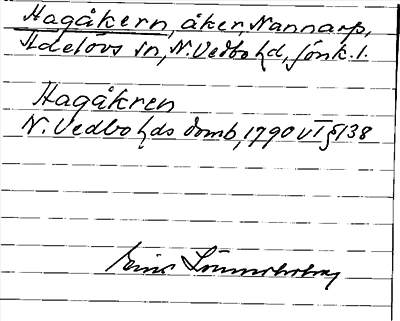 Hagåkern, åker, Nannarp,
Adelövs sn, N. Vedbo hd, Jönk. l.
Hagåkren
N. Vedbo hds domb, 1790 VI § 138
Erik